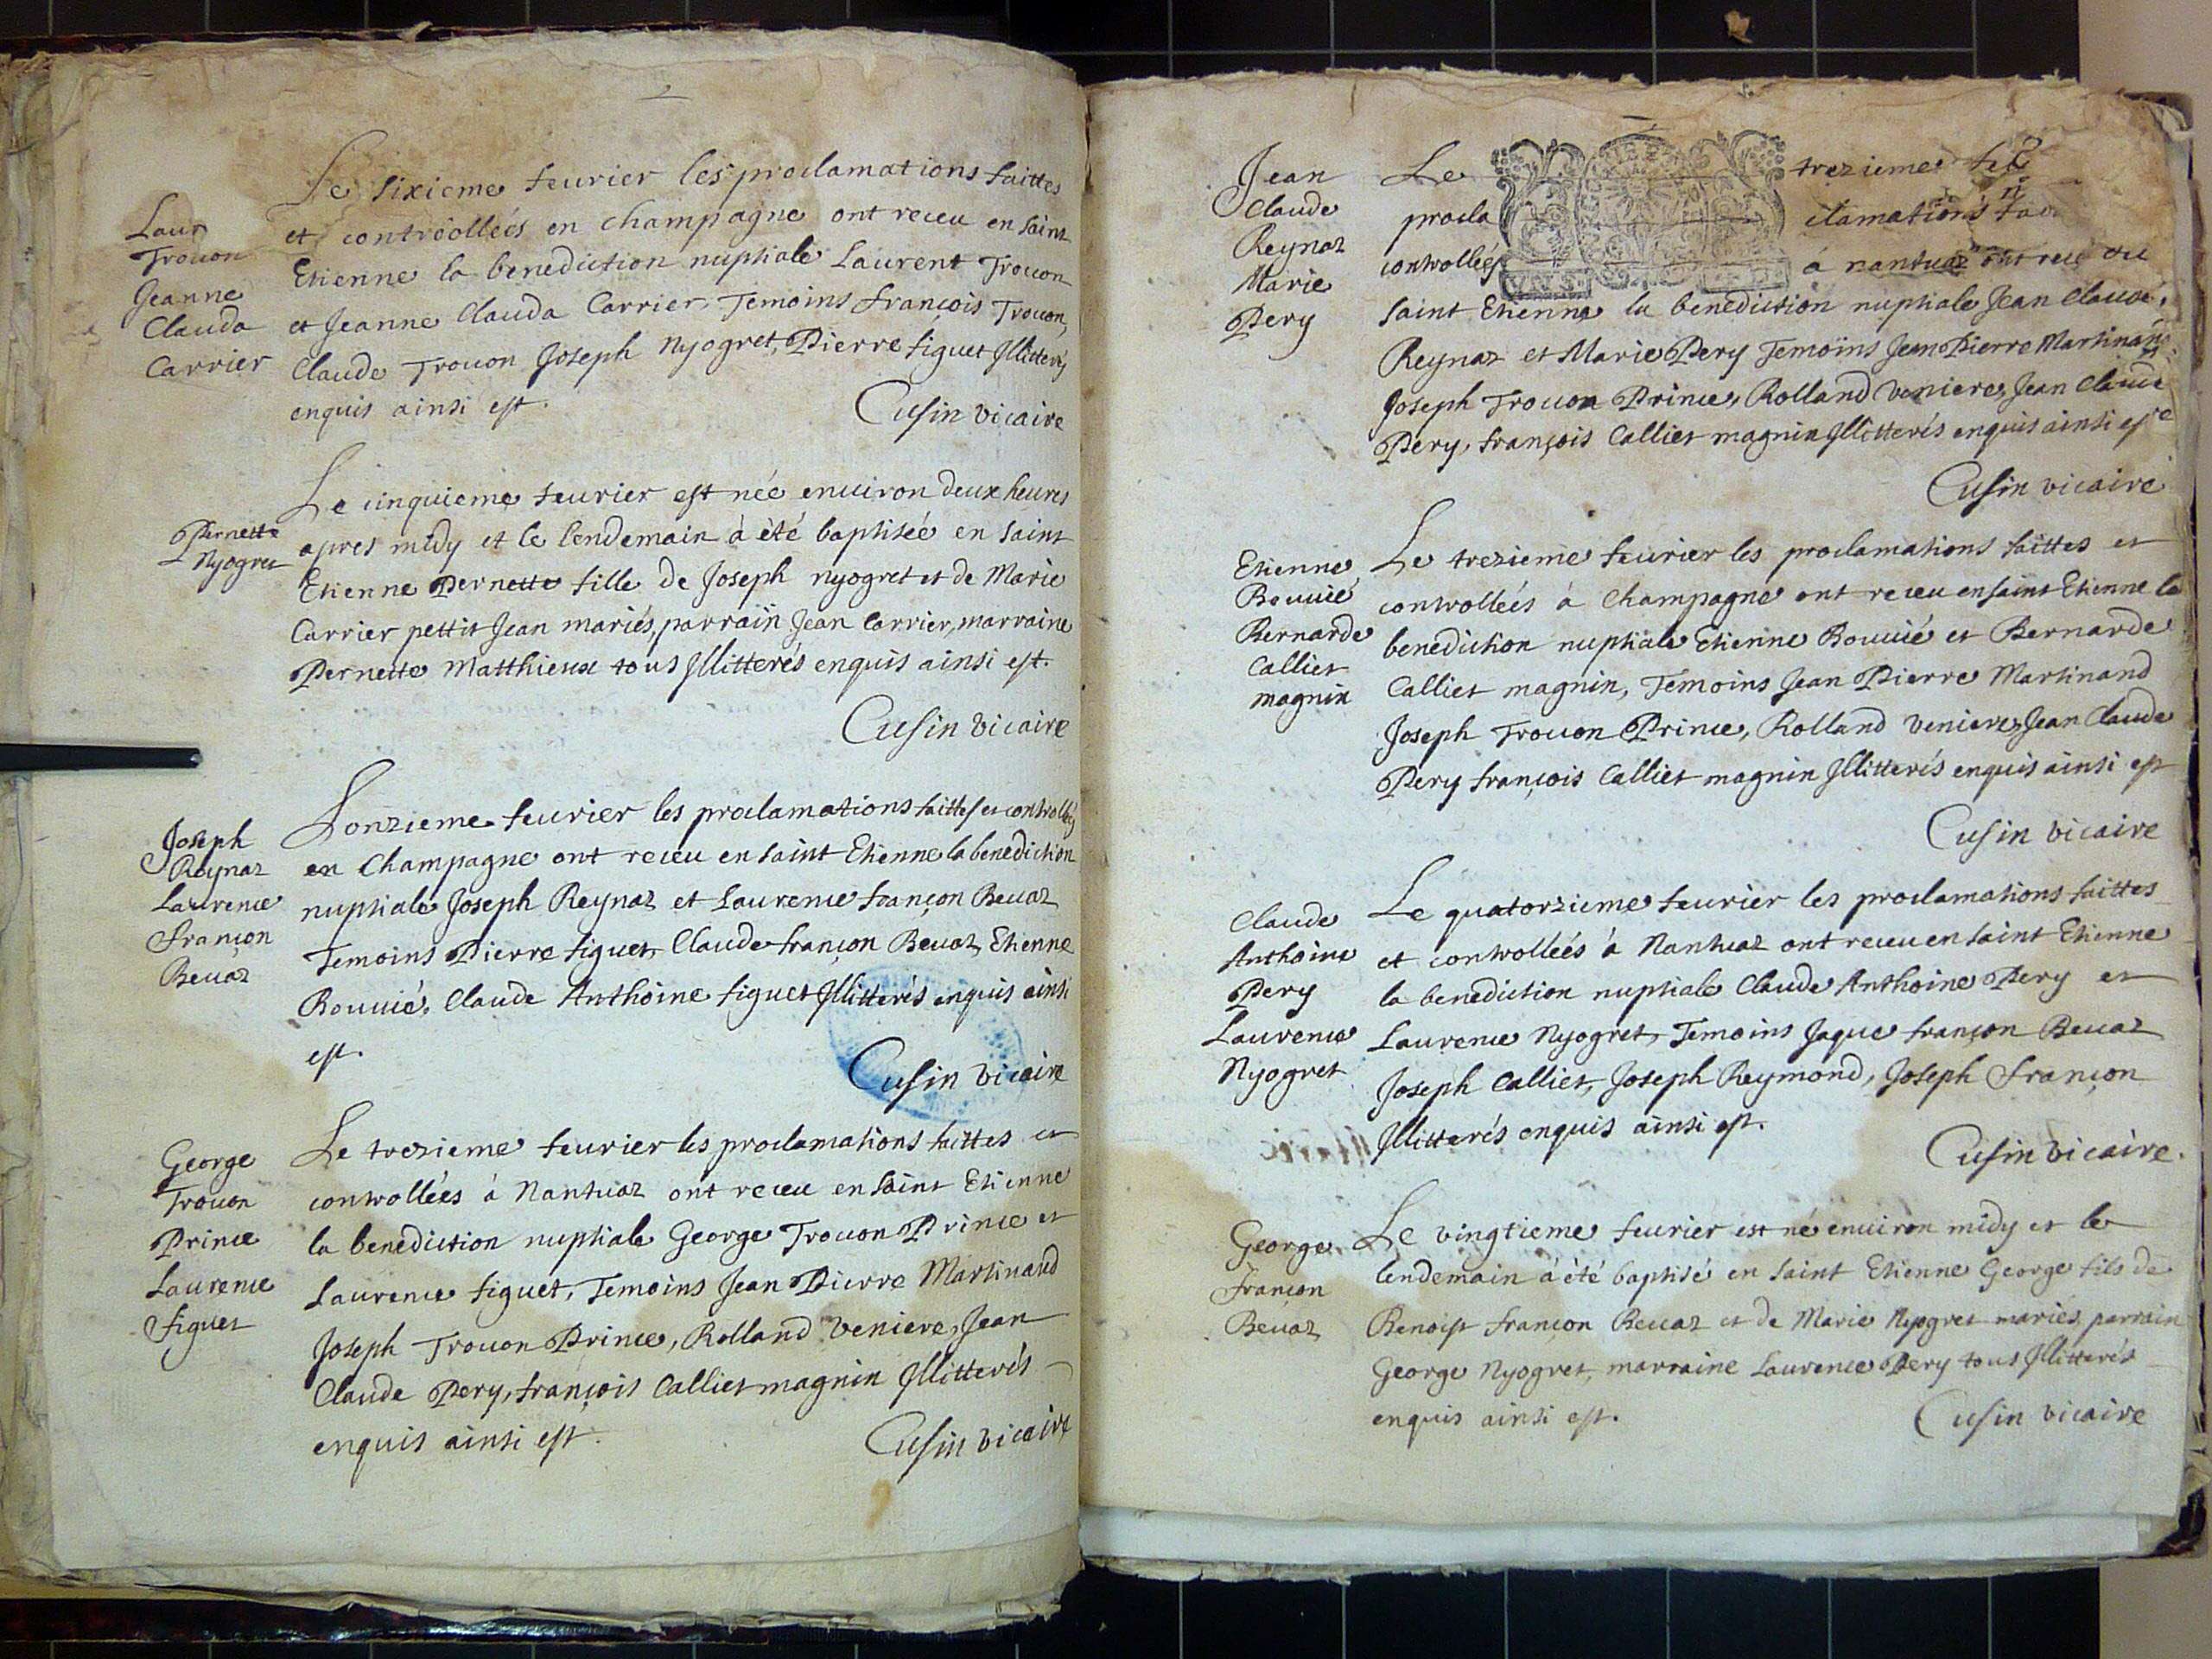 Laur
Trouon
Jeanne
Clauda
Carrier
Le sixieme feurier les proclamations faittes
et controolleés en champagne ont receu en saint
Etienne la benediction nuptiale Laurent Trouon
et Jeanne Clauda Carrier, Temoins françois Trouon,
Claude Trouon Joseph Nyogret, Pierre figuet Jllitterés
enquis ainsi est.
Cusin vicaire
Pernette
Nyogret
Le cinquieme feurier est née enuiron deux heures
apres midy et le lendemain à été baptisée en saint
Etienne Pernette fille de Joseph nyogret et de Marie
Carrier pettit Jean mariés, parrain Jean Carrier, marraine
Pernette Matthieux tous Jllitterés enquis ainsi est.
Cusin vicaire
Joseph
Reynaz
Laurence
françon
Beuaz
Lonzieme feurier les proclamations faittes et controllés
en Champagne ont receu en saint Etienne la benediction
nuptiale Joseph Reynaz et Laurence françon Beuaz
Temoins Pierre figuet, Claude françon Beuaz, Etienne
Bouuié, Claude Anthoine figuet Jllitterés enquis ainsi
est.
Cusin vicaire
George
Trouon
Prince
Laurence
figuet
Le trezieme feurier les proclamations faittes et
controllées à Nantuaz ont receu en saint Etienne
la benediction nuptiale George Trouon Prince et
Laurence figuet, Temoins Jean Pierre Martinand
Joseph Trouon Prince, Rolland Veniere, Jean
Claude Pery, françois Calliet magnin Jllitterés
enquis ainsi est.
Cusin vicaire
Jean
Claude
Reynaz
Marie
Pery
Le trezieme
procla clamations
controllés à nantuaz ont receu
saint Etienne la benediction nuptiale Jean Claude
Reynaz et Marie Pery Temoins Jean Pierre Martinand
Joseph Trouon Prince, Rolland Veniere, Jean Claude
Pery, françois Calliet magnin Jllitterés enquis ainsi est
Cusin vicaire
Etienne
Bouuié
Bernarde
Calliet
magnin
Le trezieme feurier les proclamations faittes et
controlleés à Champagne ont receu en saint Etienne la
benediction nuptiale Etienne Bouuié et Bernarde
Calliet magnin, Temoins Jean Pierre Martinand
Joseph Trouon Prince, Rolland Veniere, Jean Claude
Pery françois Calliet magnin Jllitterés enquis ainsi est
Cusin vicaire
Claude
Anthoine
Pery
Laurence
Nyogret
Le quatorzieme feurier les proclamations faittes
et controlleés à Nantuaz ont receu en saint Etienne
la benediction nuptiale Claude Anthoine Pery et
Laurence Nyogret, Temoins Jaque françon Beuaz
Joseph Calliet, Joseph Reymond, Joseph françon
Jllitterés enquis ainsi est.
Cusin vicaire.
George
françon
Beuaz
Le vingtieme feurier est né enuiron midy et le
lendemain à été baptisé en saint Etienne George fils de
Benoist françon Beuaz et de Marie Nyogret mariés, parrain
George Nyogret, marraine Laurence Pery tous Jllitterés
enquis ainsi est.
Cusin vicaire